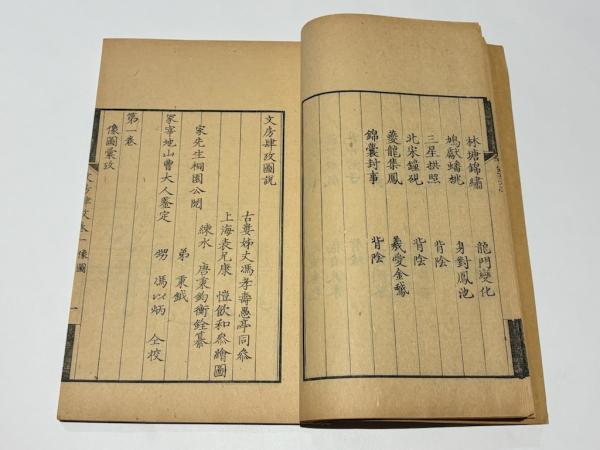 林塘錦繡 龍門變化
鳩獻蟠桃 身對鳳池
三星拱照 背陰
北宋鐘硯 背陰
夔龍集鳳 羲愛金鵞
錦囊封事 背陰
文房肆攷圖說
古婁姊丈馮孝壽愚亭同參
上海袁兄康 愷飲和參繪圖
練水 唐秉鈞衡銓纂
家先生桐園公閱
弟 秉鉞
冢宰地山曹大人鑒定
甥 馮以炳 仝校
第一卷
像圖彙攷
像圖
一